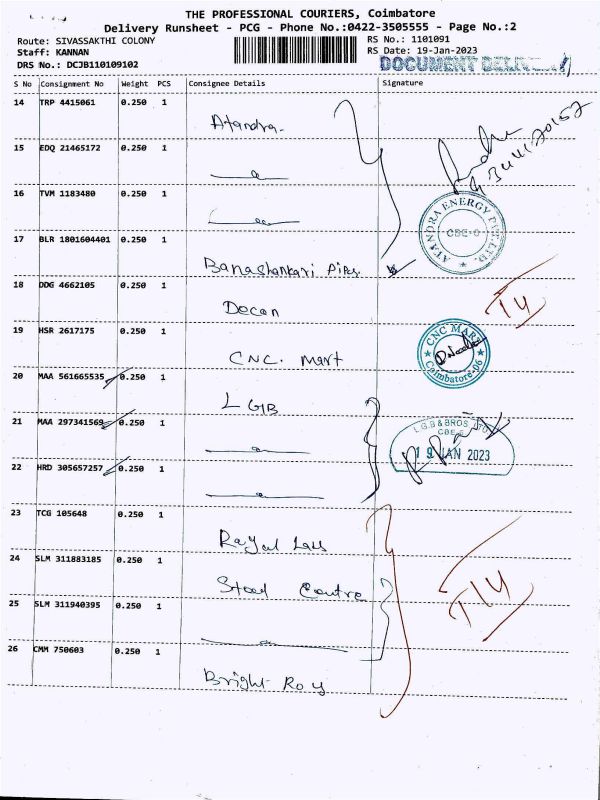 THE PROFESSIONAL COURIERS, Coimbatore
Delivery Runsheet - PCG - Phone No.:0422-3505555 - Page No.:2
Route: SIVASSAKTHI COLONY
RS No.: 1101091
Staff: KANNAN
RS Date: 19-Jan-2023
DRS No.: DCJB110109102
DOCUMENT
S No Consignment No Weight PCS Consignee Details Signature
14 TRP 4415061 0.250 1
Atandra.
15 EDQ 21465172 0.250 1
16 TVM 1183480 0.250 1
ATANDRA ENERGY PVT. LTD.
CBE-6
17 BLR 1801604401 0.250 1
Banashankari Pipes
18 DDG 4662105 0.250 1
Decan
T4
19 HSR 2617175 0.250 1
CNC. Mart
CNC MART
Coimbatore-06
20 MAA 561665535 0.250 1
LGB
21 MAA 297341569 0.250 1
L.G.B & BROS LTD
CBE-6
19 JAN 2023
22 HRD 305657257 0.250 1
23 TCG 105648 0.250 1
24 SLM 311883185 0.250 1
Steel Centre
25 SLM 311940395 0.250 1
26 CMM 750603 0.250 1
Bright Roy